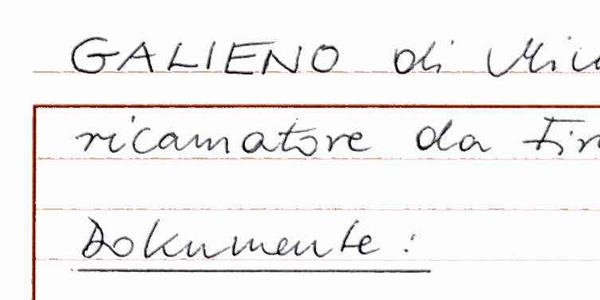 GALIENO di
ricamatore da
Dokumente: